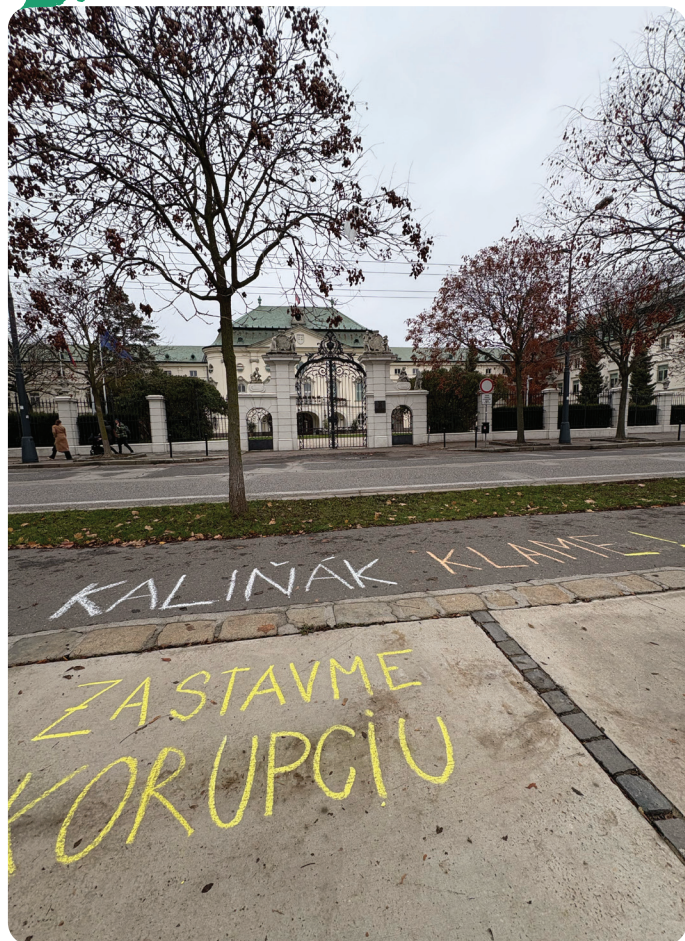 KALIŇÁK KLAME
ZASTAVME
KORUPCIU